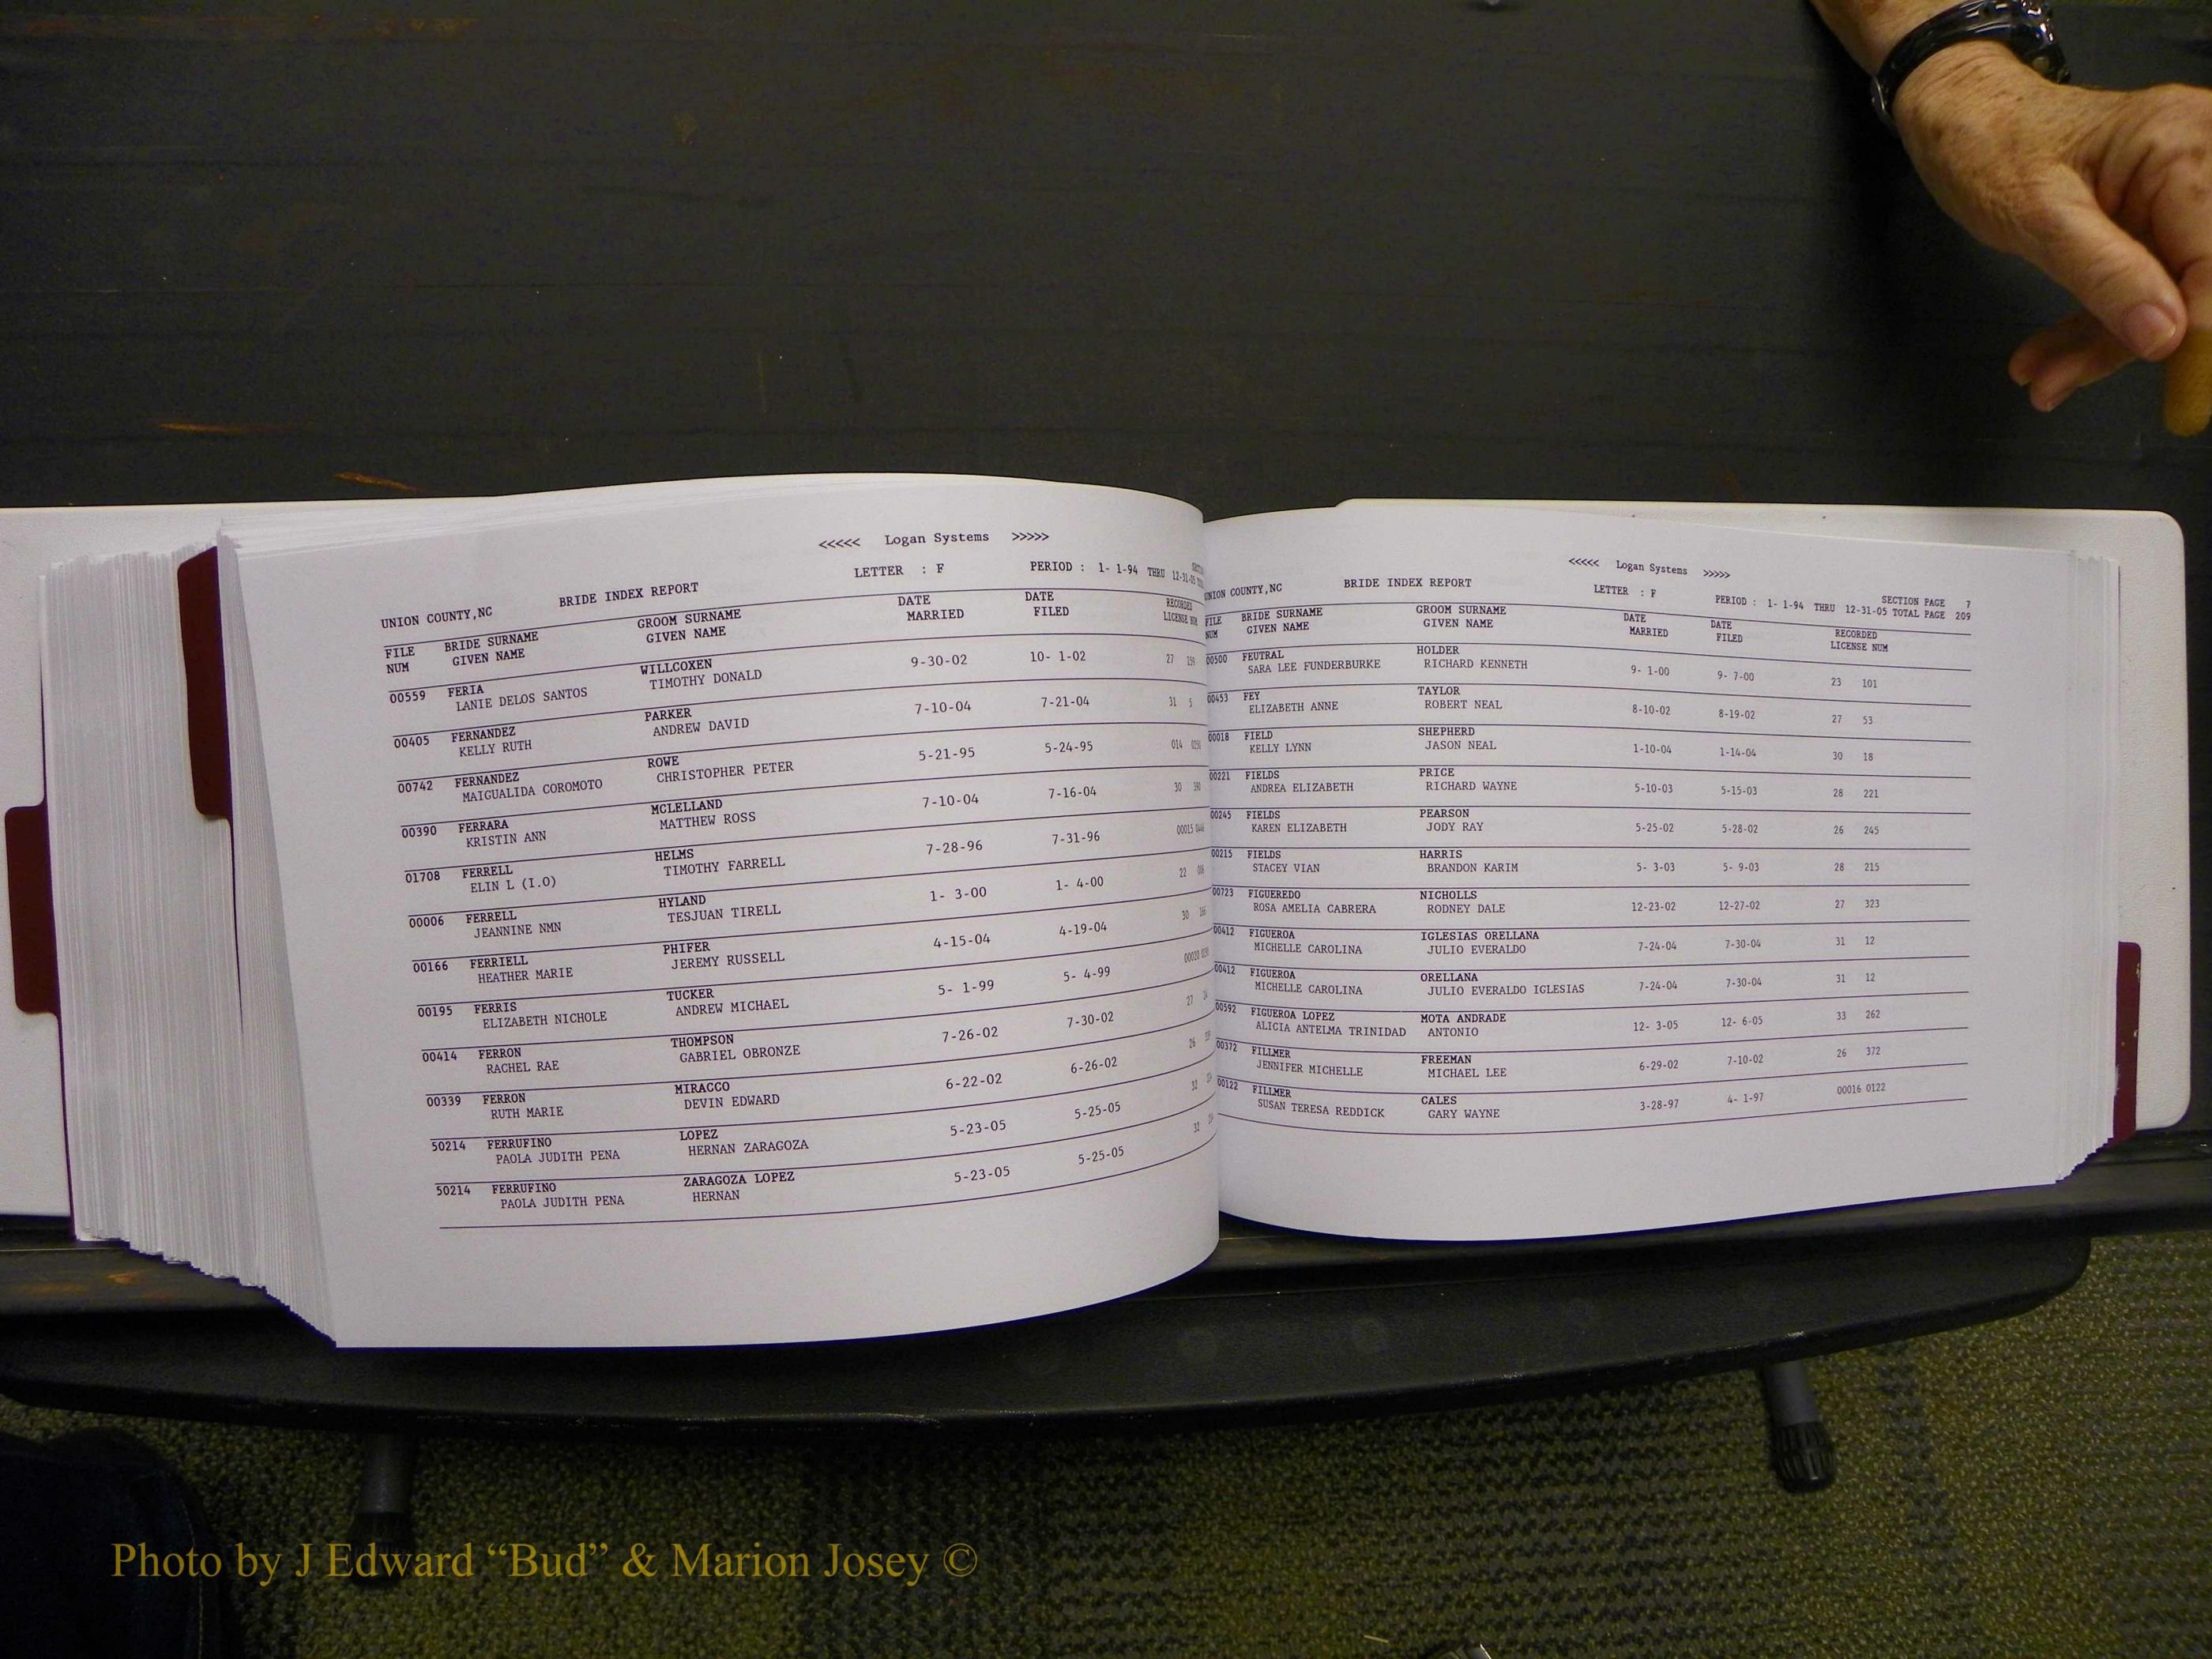 <<<<< Logan Systems >>>>>
UNION COUNTY,NC BRIDE INDEX REPORT LETTER : F PERIOD : 1- 1-94 THRU 12-31-05
FILE BRIDE SURNAME GROOM SURNAME DATE DATE RECORDED
NUM GIVEN NAME GIVEN NAME MARRIED FILED LICENSE NUM
00559 FERIA WILLCOXEN 9-30-02 10- 1-02 27
LANIE DELOS SANTOS TIMOTHY DONALD
00405 FERNANDEZ PARKER 7-10-04 7-21-04 31 5
KELLY RUTH ANDREW DAVID
00742 FERNANDEZ ROWE 5-21-95 5-24-95 014
MAIGUALIDA COROMOTO CHRISTOPHER PETER
00390 FERRARA MCLELLAND 7-10-04 7-16-04 30
KRISTIN ANN MATTHEW ROSS
01708 FERRELL HELMS 7-28-96 7-31-96 00015
ELIN L (I.O) TIMOTHY FARRELL
00006 FERRELL HYLAND 1- 3-00 1- 4-00 22
JEANNINE NMN TESJUAN TIRELL
00166 FERRIELL PHIFER 4-15-04 4-19-04 30
HEATHER MARIE JEREMY RUSSELL
00195 FERRIS TUCKER 5- 1-99 5- 4-99
ELIZABETH NICHOLE ANDREW MICHAEL
00414 FERRON THOMPSON 7-26-02 7-30-02 27
RACHEL RAE GABRIEL OBRONZE
00339 FERRON MIRACCO 6-22-02 6-26-02 26
RUTH MARIE DEVIN EDWARD
50214 FERRUFINO LOPEZ 5-23-05 5-25-05 32
PAOLA JUDITH PENA HERNAN ZARAGOZA
50214 FERRUFINO ZARAGOZA LOPEZ 5-23-05 5-25-05 32
PAOLA JUDITH PENA HERNAN
<<<<< Logan Systems >>>>>
SECTION PAGE 7
UNION COUNTY,NC BRIDE INDEX REPORT LETTER : F PERIOD : 1- 1-94 THRU 12-31-05 TOTAL PAGE 209
FILE BRIDE SURNAME GROOM SURNAME DATE DATE RECORDED
NUM GIVEN NAME GIVEN NAME MARRIED FILED LICENSE NUM
00500 FEUTRAL HOLDER 9- 1-00 9- 7-00 23 101
SARA LEE FUNDERBURKE RICHARD KENNETH
00453 FEY TAYLOR 8-10-02 8-19-02 27 53
ELIZABETH ANNE ROBERT NEAL
00018 FIELD SHEPHERD 1-10-04 1-14-04 30 18
KELLY LYNN JASON NEAL
00221 FIELDS PRICE 5-10-03 5-15-03 28 221
ANDREA ELIZABETH RICHARD WAYNE
00245 FIELDS PEARSON 5-25-02 5-28-02 26 245
KAREN ELIZABETH JODY RAY
00215 FIELDS HARRIS 5- 3-03 5- 9-03 28 215
STACEY VIAN BRANDON KARIM
00723 FIGUEREDO NICHOLLS 12-23-02 12-27-02 27 323
ROSA AMELIA CABRERA RODNEY DALE
00412 FIGUEROA IGLESIAS ORELLANA 7-24-04 7-30-04 31 12
MICHELLE CAROLINA JULIO EVERALDO
00412 FIGUEROA ORELLANA 7-24-04 7-30-04 31 12
MICHELLE CAROLINA JULIO EVERALDO IGLESIAS
00592 FIGUEROA LOPEZ MOTA ANDRADE 12- 3-05 12- 6-05 33 262
ALICIA ANTELMA TRINIDAD ANTONIO
00372 FILLMER FREEMAN 6-29-02 7-10-02 26 372
JENNIFER MICHELLE MICHAEL LEE
00122 FILLMER CALES 3-28-97 4- 1-97 00016 0122
SUSAN TERESA REDDICK GARY WAYNE
Photo by J Edward “Bud” & Marion Josey ©